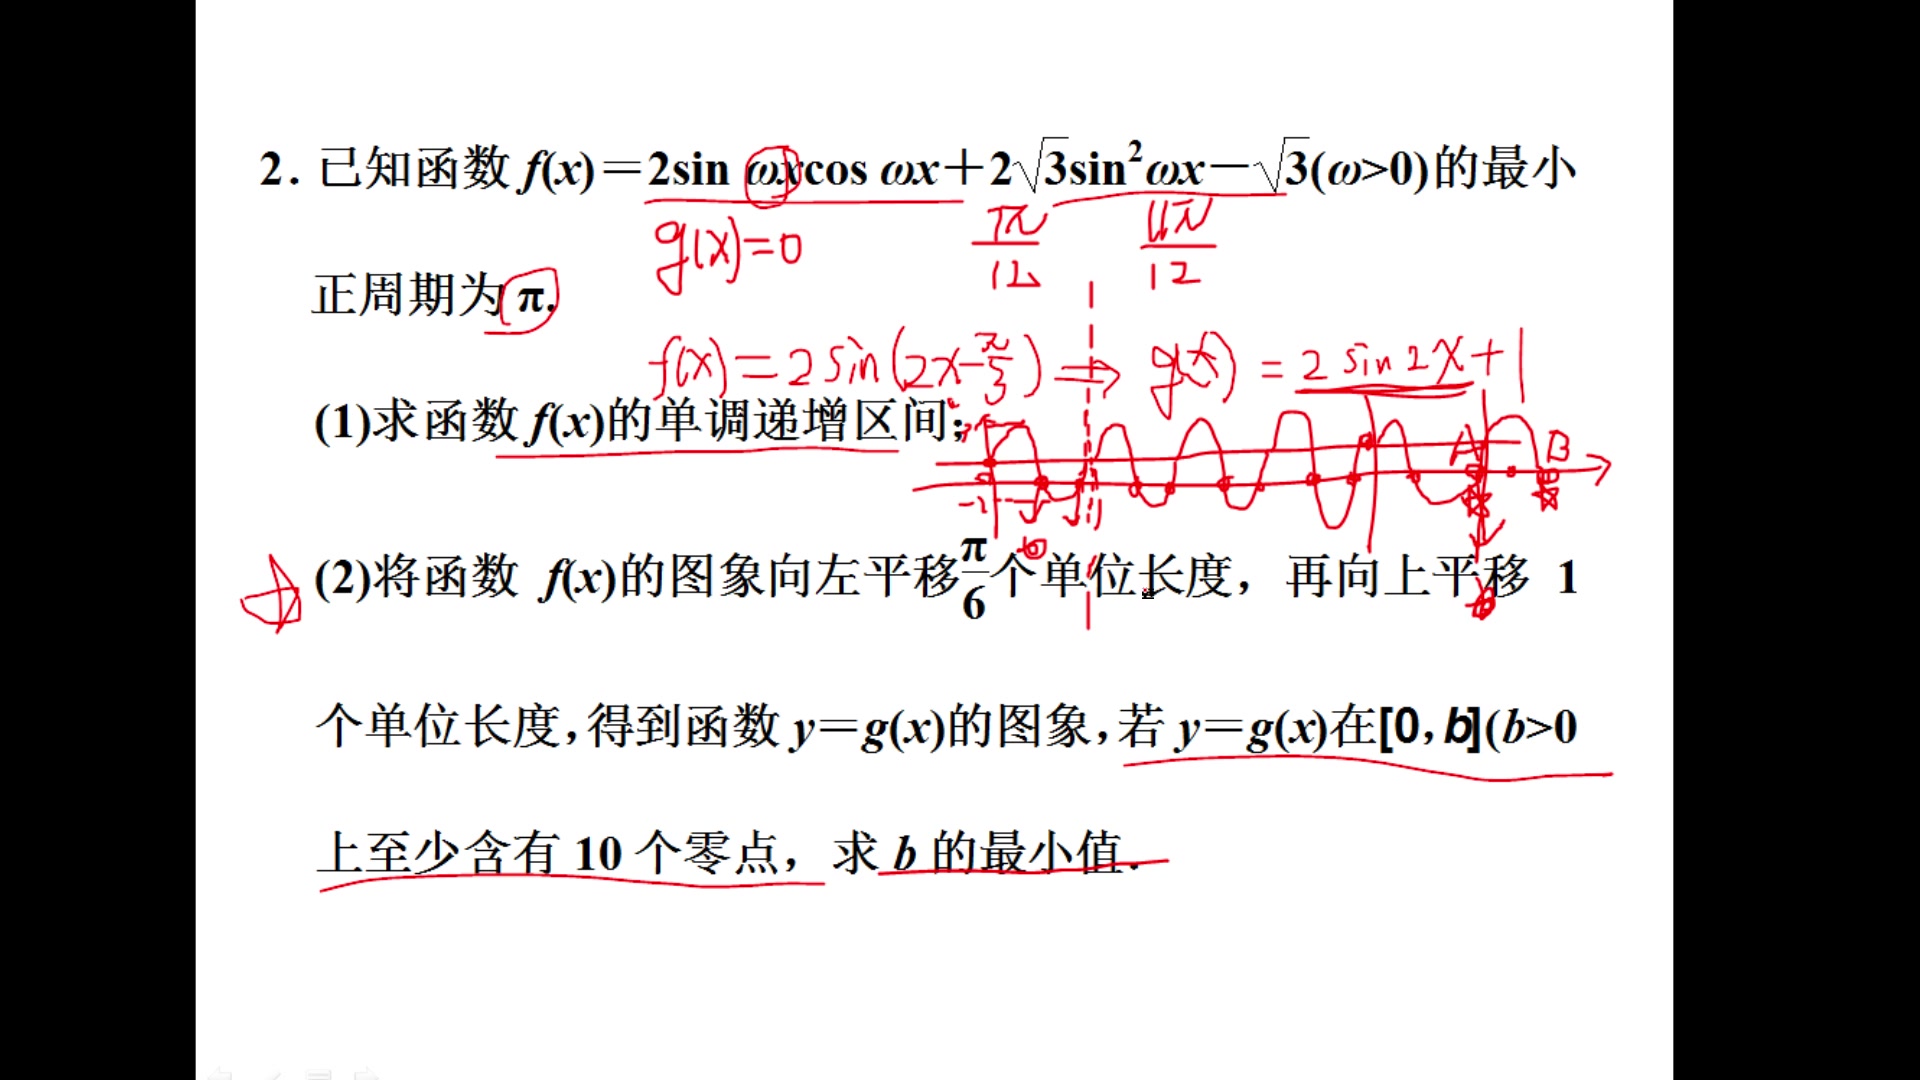 2. 已知函数 f(x)=2sin ωxcos ωx+2√3sin²ωx-√3(ω>0)的最小
g(x)=0 π/12 11π/12
正周期为 π.
f(x)=2sin(2x-π/3) ⇒ g(x)=2sin2x+1
(1)求函数 f(x)的单调递增区间;
A B
-1
(2)将函数 f(x)的图象向左平移π/6个单位长度，再向上平移 1
b
个单位长度，得到函数 y=g(x)的图象，若 y=g(x)在[0，b](b>0
上至少含有 10 个零点，求 b 的最小值.